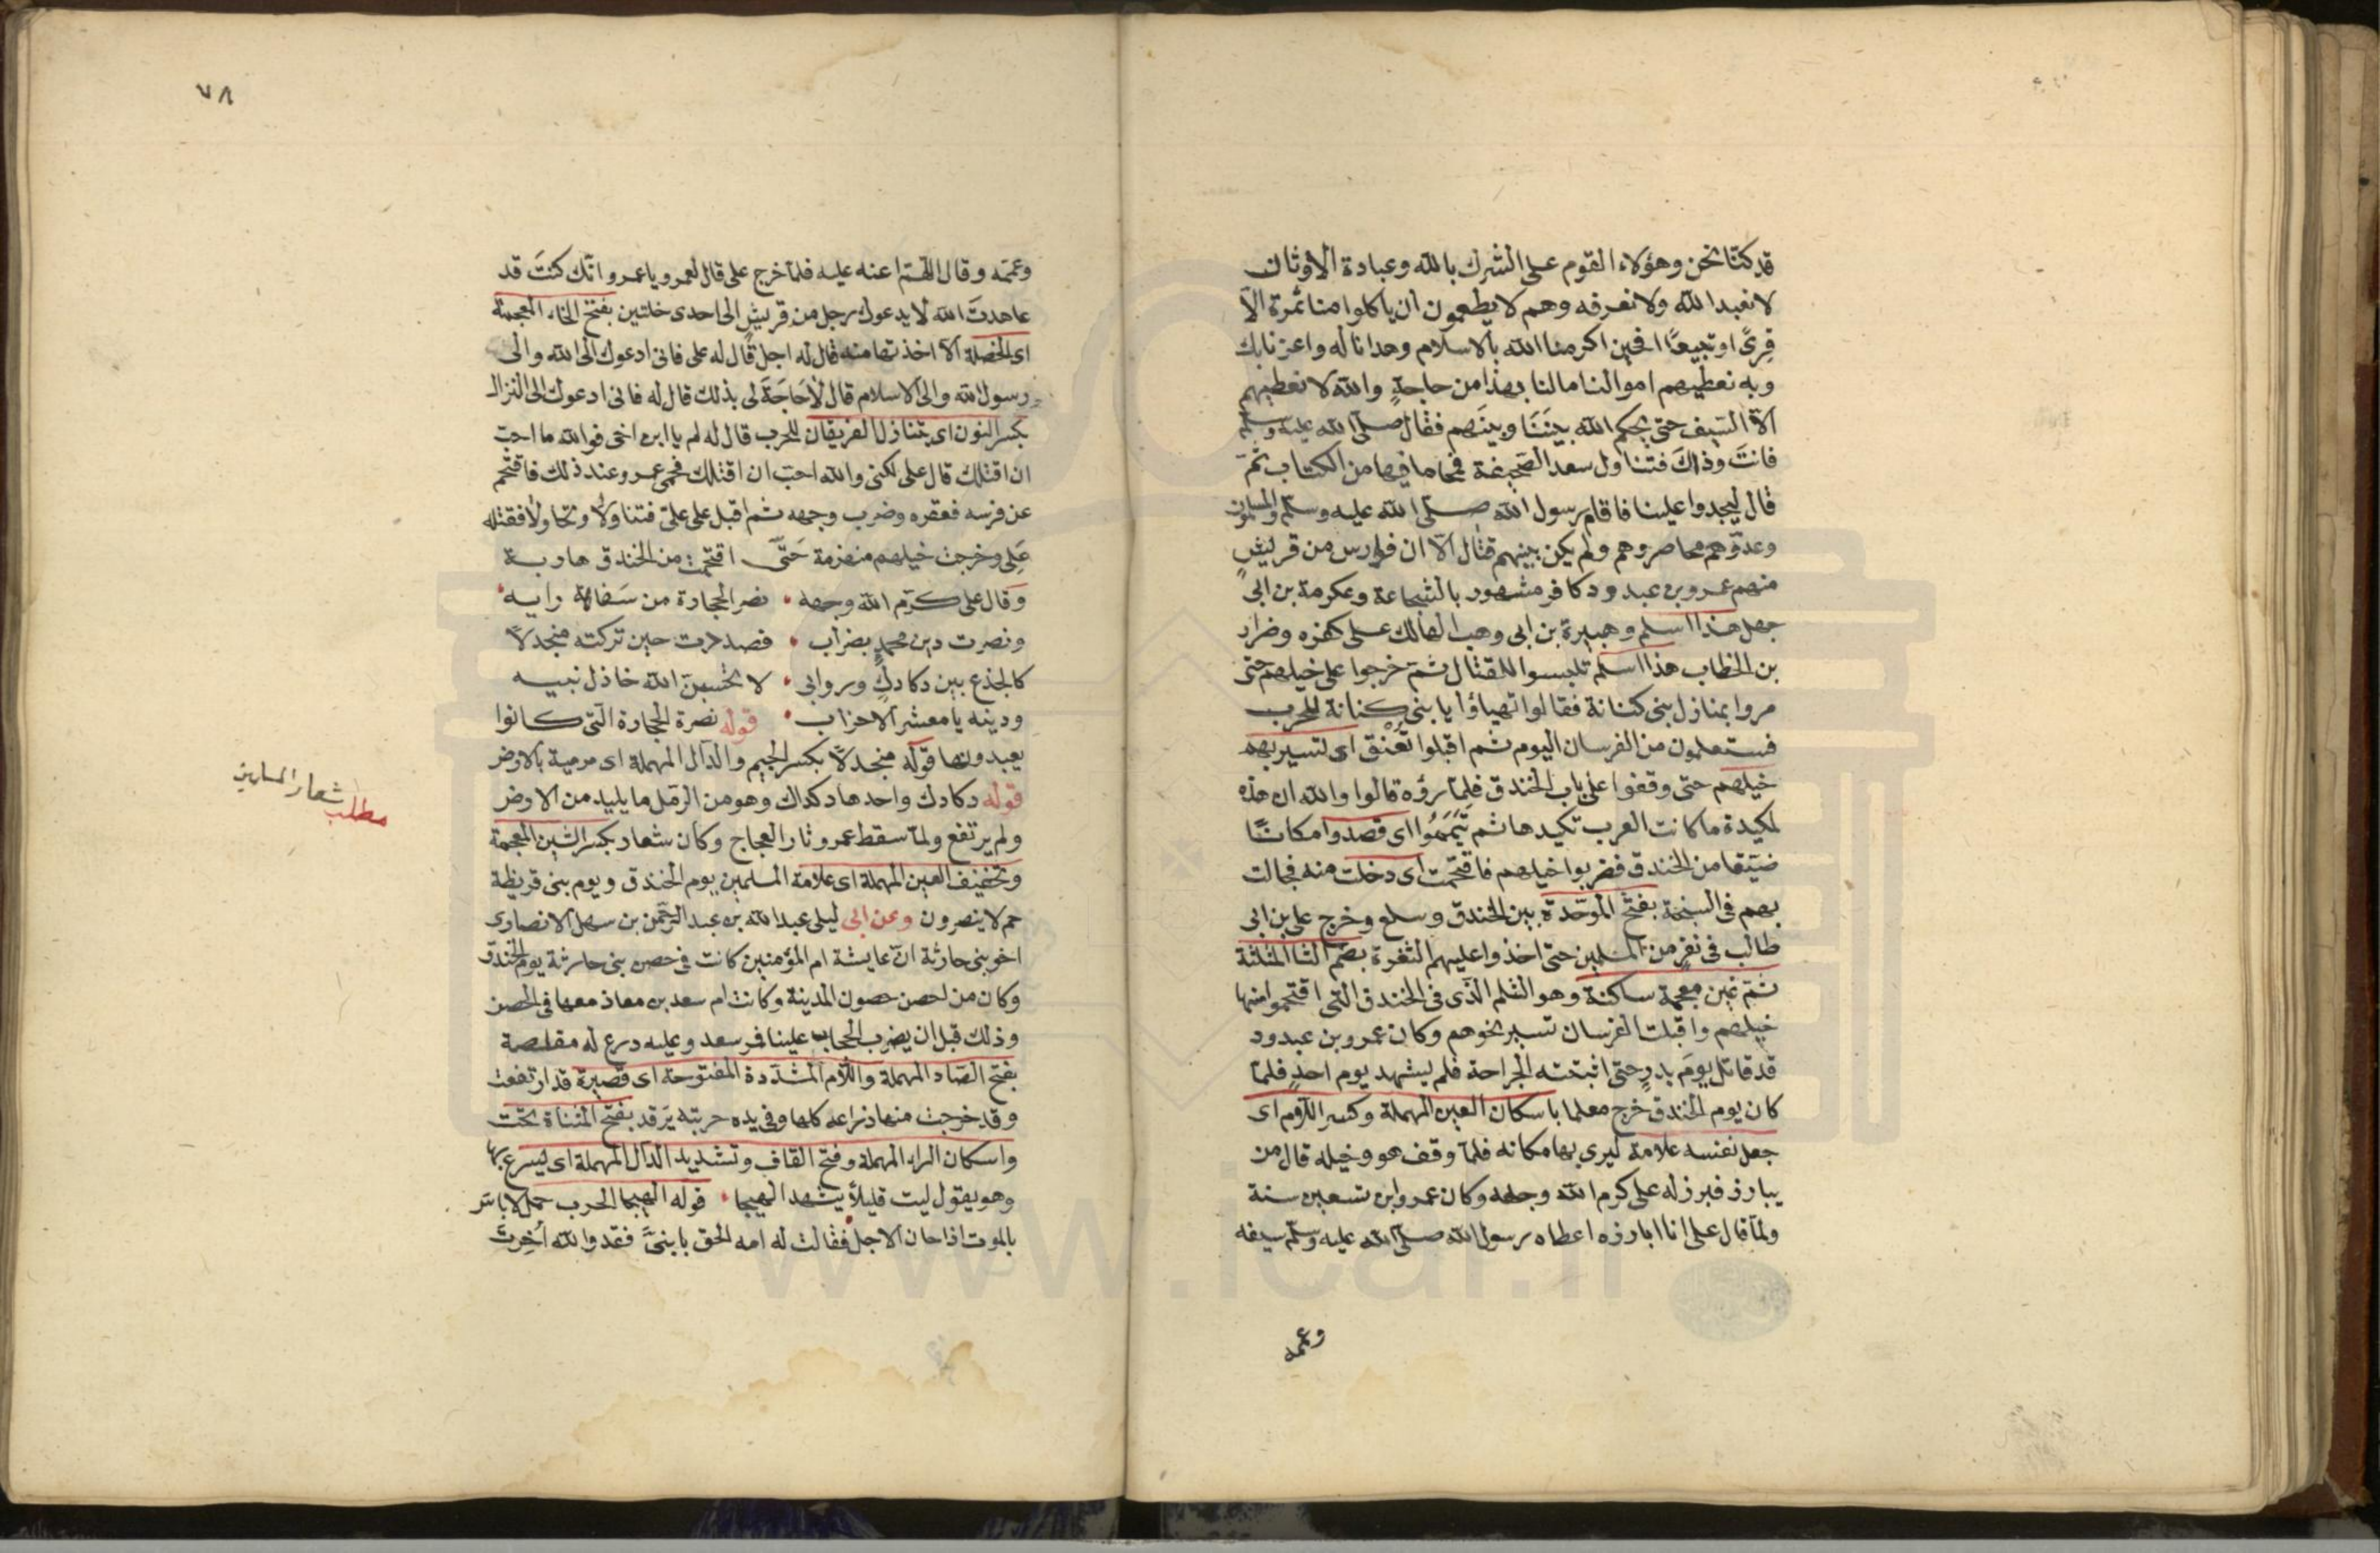 قد كنّا نحن وهؤلاء القوم على الشرك بالله وعبادة الاوثان
لا نعبد الله ولا نعرفه وهم لا يطعمون ان ياكلوا منا تمرة الّا
قِرىً او تبيعًا افحين اكرمنا الله بالاسلام وهدانا له واعزنا بك
وبه نعطيهم اموالنا مالنا بهذا من حاجةٍ والله لا نعطيهم
الّا السّيف حتى يحكم الله بيننا وبينهم فقال صلى الله عليه وسلم
فانتَ وذاكَ فتناول سعد الصحيفة فمحا ما فيها من الكتاب ثمّ
قال ليجهدوا علينا فاقام رسول الله صلى الله عليه وسلم والمسلمون
وعدوّهم محاصروهم ولم يكن بينهم قتال الّا ان فوارس من قريشٍ
منهم عمرو بن عبد ود كافر مشهور بالشجاعة وعكرمة بن ابى
جهل هذا اسلم وهبيرة بن ابى وهب الهالك على كفره وضرار
بن الخطاب هذا اسلم تلبسوا للقتال ثم خرجوا على خيلهم حتى
مروا بمنازل بنى كنانة فقالوا تهياؤا يا بنى كنانة للحرب
فستعلمون من الفرسان اليوم ثم اقبلوا تُعْنق اى لتسير بهم
خيلهم حتى وقفوا على باب الخندق فلمّا رؤه قالوا والله ان هذه
لمكيدة ما كانت العرب تكيدها ثم تَيَمَمُوا اى قصدوا مكانًا
ضيّقا من الخندق فضربوا خيلهم فاقتحمت اى دخلت منه فجالت
بهم فى السبخة بفتح الموحّدة بين الخندق وسلع وخرج على بن ابى
طالب فى نفرٍ من المسلمين حتى اخذوا عليهم الثغرة بضم الثا المثلثة
ثم غين معجمة ساكنة وهو الثلم الّذى فى الخندق التى اقتحموا منها
خيلهم واقبلت الفرسان تسير نحوهم وكان عمرو بن عبد ود
قد قاتل يومَ بدرٍ حتى اثبتته الجراحة فلم يشهد يوم احدٍ فلمّا
كان يوم الخندق خرج معلما باسكان العين المهملة وكسر اللام اى
جعل نفسه علامة ليرى بها مكانه فلمّا وقف هو وخيله قال من
يبارز فبرز له على كرم الله وجهه وكان عمرو ابن تسعين سنة
ولمّا قال على انا ابارزه اعطاه رسول الله صلى الله عليه وسلم سيفه
وعممه
٧٨
وعممه وقال اللهم اعنه عليه فلمّا خرج على قال لعمرو يا عمرو انّك كنتَ قد
عاهدتَ الله لا يدعوك رجل من قريشٍ الى احدى خلتين بفتح الخاء المعجمة
اى الخصلة الا اخذتها منه قال له اجل قال له على فانى ادعوك الى الله والى
رسول الله والى الاسلام قال لا حَاجَةَ لى بذلك قال له فانى ادعوك الى النزال
بكسر النون اى يتنازل الفريقان للحرب قال له لم يا ابن اخى فوالله ما احبّ
ان اقتلك قال على لكنى والله احبّ ان اقتلك فحمى عمرو عند ذلك فاقتحم
عن فرسه فعقره وضرب وجهه ثم اقبل على علىّ فتناولا وتجاولا فقتله
عَلِى وخرجت خيلهم منهزمة حَتّى اقتحمت من الخندق هاربة
وقال على كرّم الله وجهه نصر الحجارة من سَفاهة رايه
ونصرت دين محمدٍ بضراب فصددت حين تركته منجدلاً
كالجذع بين دكادكٍ وروابى لا تحسبنّ الله خاذل نبيه
ودينه يا معشر الاحزاب قوله نصرة الحجارة التى كانوا
يعبدونها قوله منجدلاً بكسر الجيم والدال المهملة اى مرمية بالارض
قوله دكادك واحدها دكداك وهو من الرمل ما يلبد من الارض
ولم يرتفع ولمّا سقط عمرو ثار العجاج وكان شعار بكسر الشين المعجمة
وتخفيف العين المهملة اى علامة المسلمين يوم الخندق ويوم بنى قريظة
حم لا ينصرون وعن ابى ليلى عبد الله بن عبد الرحمن بن سهل الانصارى
اخو بنى حارثة انّ عايشة ام المؤمنين كانت فى حصن بنى حارثة يوم الخندق
وكان من احصن حصون المدينة وكانت ام سعد بن معاذ معها فى الحصن
وذلك قبل ان يضرب الحجاب علينا فمر سعد وعليه درع له مقلصة
بفتح الصاد المهملة واللام المشدّدة المفتوحة اى قصيرة قد ارتفعت
وقد خرجت منها ذراعه كلها وفى يده حربته يَرقد بفتح المثناة تحت
واسكان الراء المهملة وفتح القاف وتشديد الدال المهملة اى ليسرع بها
وهو يقول ليت قليلاً يشهد الهيجا قوله الهيجا الحرب حمل لا باس
بالموت اذا حان الاجل فقالت له امه الحق يا بنىّ فقد والله اُخرتَ
مطلب شعار المسلمين
www.ical.ir